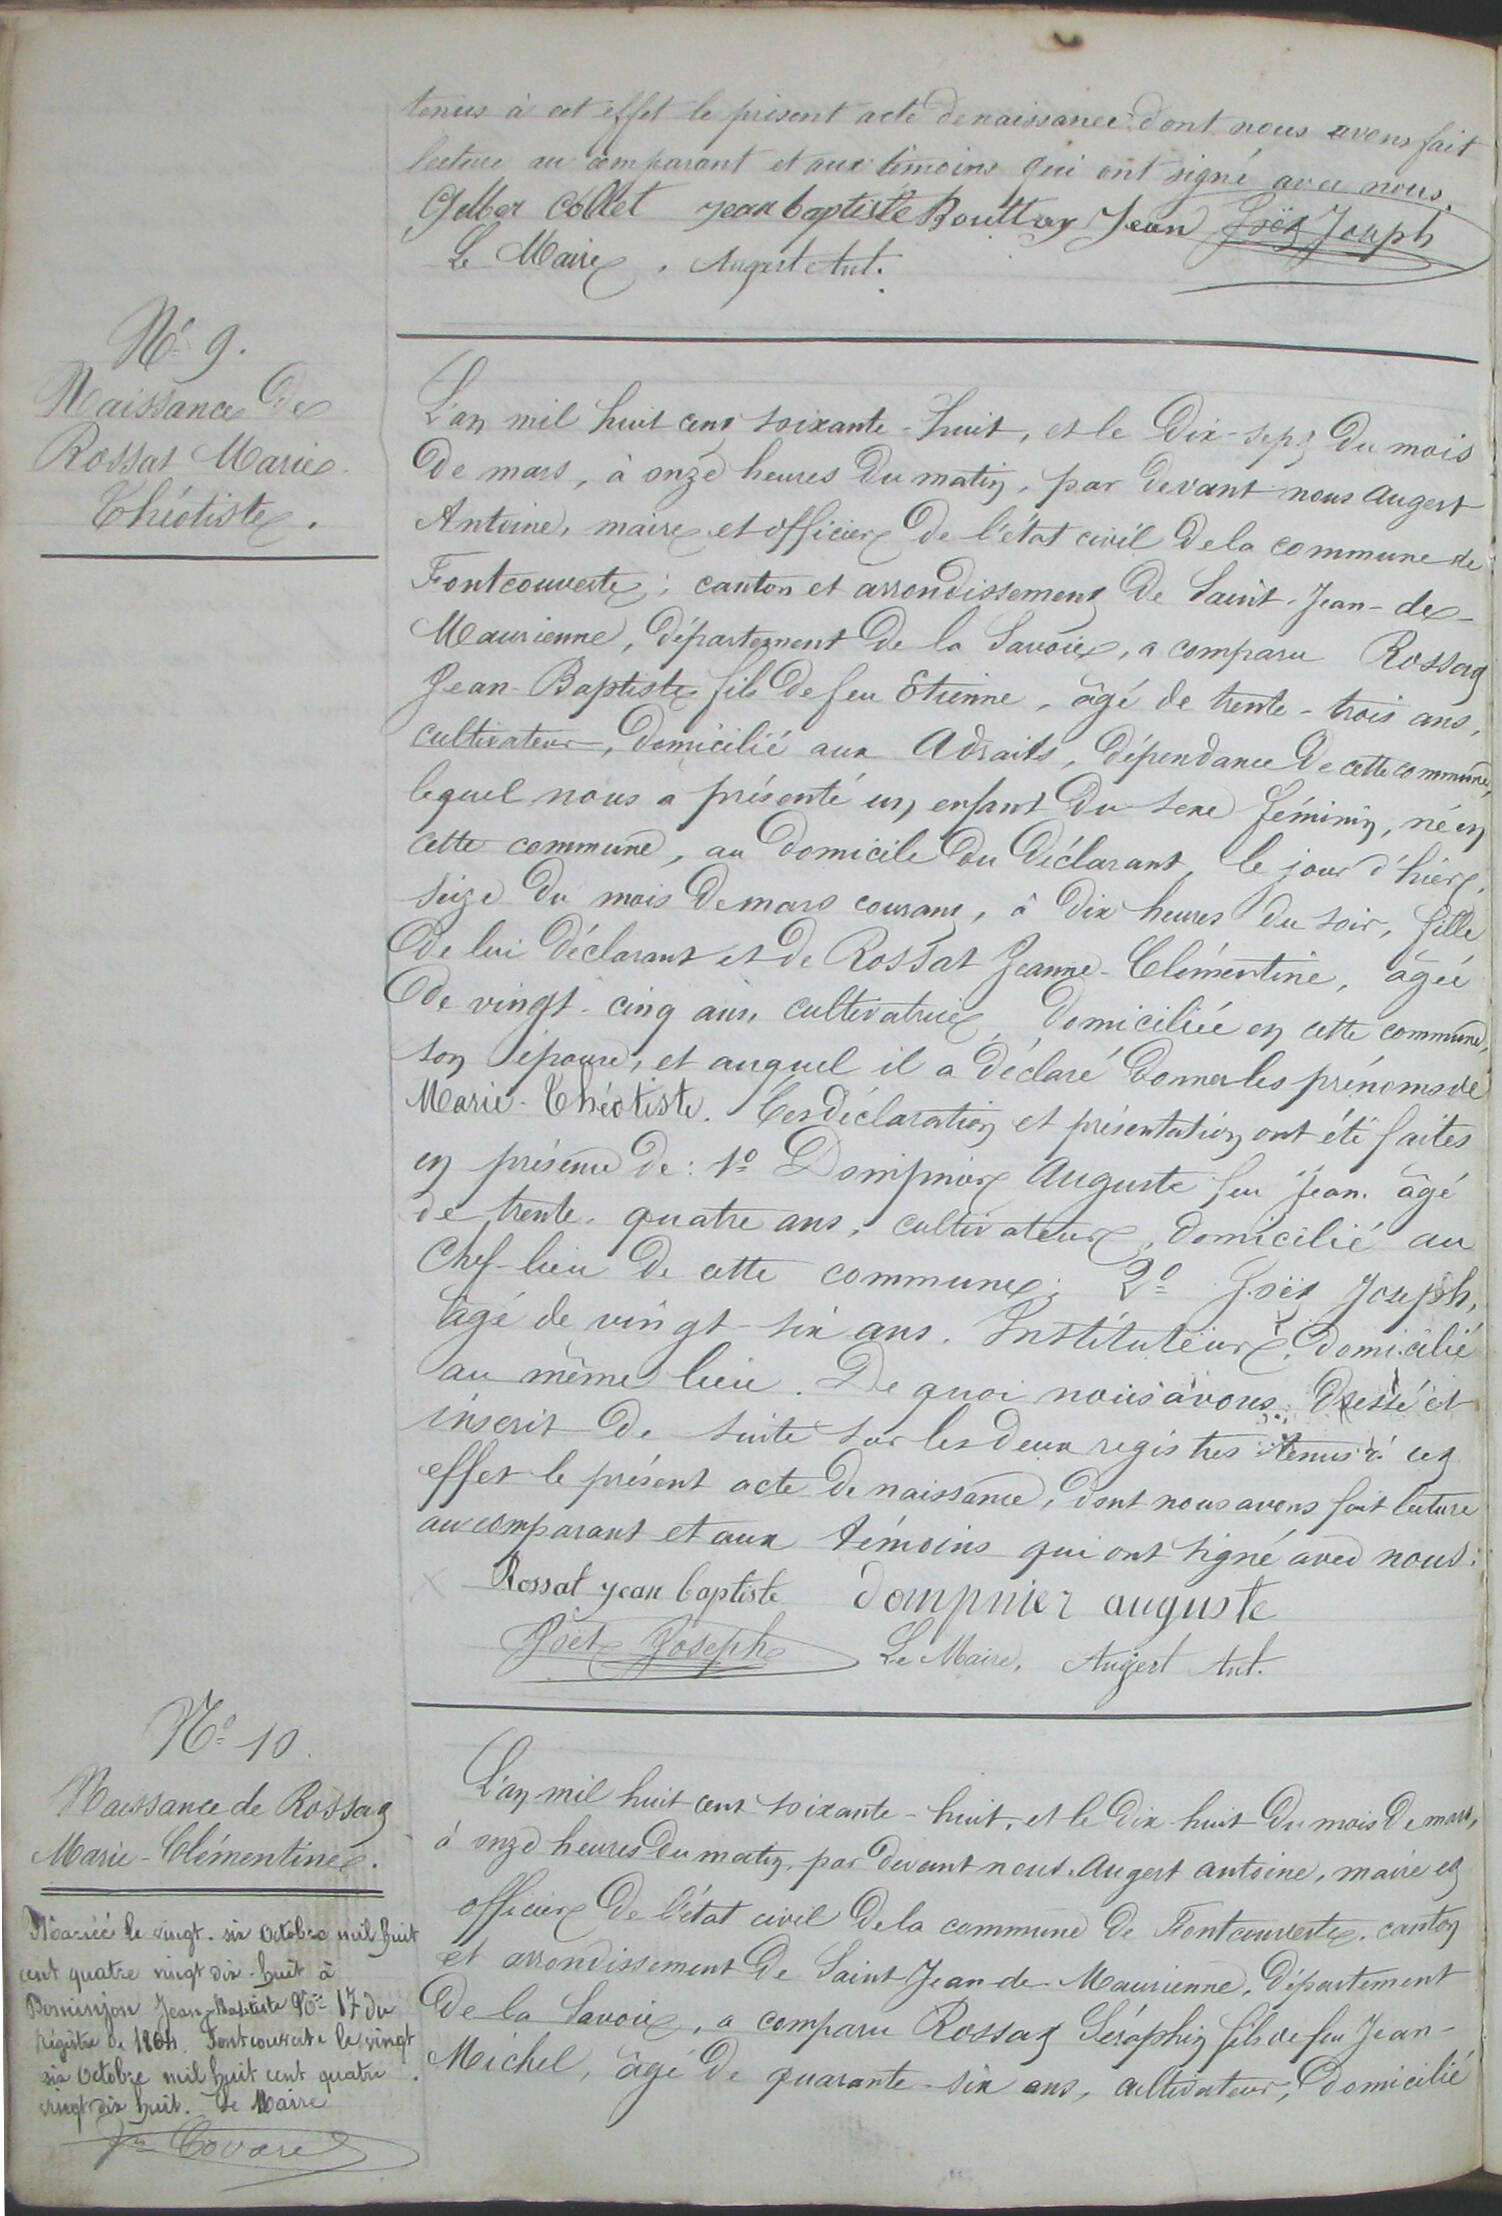 tenus à cet effet le présent acte de naissance dont nous avons fait
lecture au comparant et aux témoins qui ont signé avec nous.
Collet jean baptiste Jean Joët Joseph
Le Maire, Augert Ant.
N° 9.
Naissance de
Rossat Marie
Théotiste.
L'an mil huit cent soixante-huit, et le dix-sept du mois
de mars, à onze heures du matin, par devant nous Augert
Antoine, maire et officier de l'état civil de la commune de
Fontcouverte; canton et arrondissement de Saint-Jean-de-
Maurienne, département de la Savoie, a comparu Rossat
Jean-Baptiste fils de feu Etienne, âgé de trente-trois ans,
cultivateur, domicilié aux Adraits, dépendance de cette commune,
lequel nous a présenté un enfant du sexe féminin, né en
cette commune, au domicile du déclarant, le jour d'hier,
seize du mois de mars courant, à dix heures du soir, fille
de lui déclarant et de Rossat Jeanne-Clémentine, âgée
de vingt-cinq ans, cultivatrice, domiciliée en cette commune,
son épouse, et auquel il a déclaré donner les prénoms de
Marie-Théotiste. Ces déclaration et présentation ont été faites
en présence de: 1° Dompnier Auguste feu Jean. âgé
de trente-quatre ans, cultivateur, domicilié au
Chef-lieu de cette commune; 2° Joët Joseph,
âgé de vingt-six ans. Instituteur, domicilié
au même lieu. De quoi nous avons dressé et
inscrit de suite sur les deux registres tenus à cet
effet le présent acte de naissance, dont nous avons fait lecture
au comparant et aux témoins qui ont signé avec nous.
Rossat jean baptiste dompnier auguste
Joët Joseph Le Maire, Augert Ant.
N° 10.
Naissance de Rossat
Marie-Clémentine.
Mariée le vingt-six Octobre mil huit
cent quatre vingt dix-huit à
Dominjon Jean-Baptiste N° 17 du
régistre de 1864. Fontcouverte le vingt
six Octobre mil huit cent quatre
vingt dix huit. Le Maire
Covarel
L'an mil huit cent soixante-huit, et le dix huit du mois de mars,
à onze heures du matin, par devant nous Augert antoine, maire et
officier de l'état civil de la commune de Fontcouverte, canton
et arrondissement de Saint Jean-de-Maurienne, département
de la Savoie, a comparu Rossat Séraphin fils de feu Jean-
Michel, âgé de quarante-six ans, cultivateur, domicilié